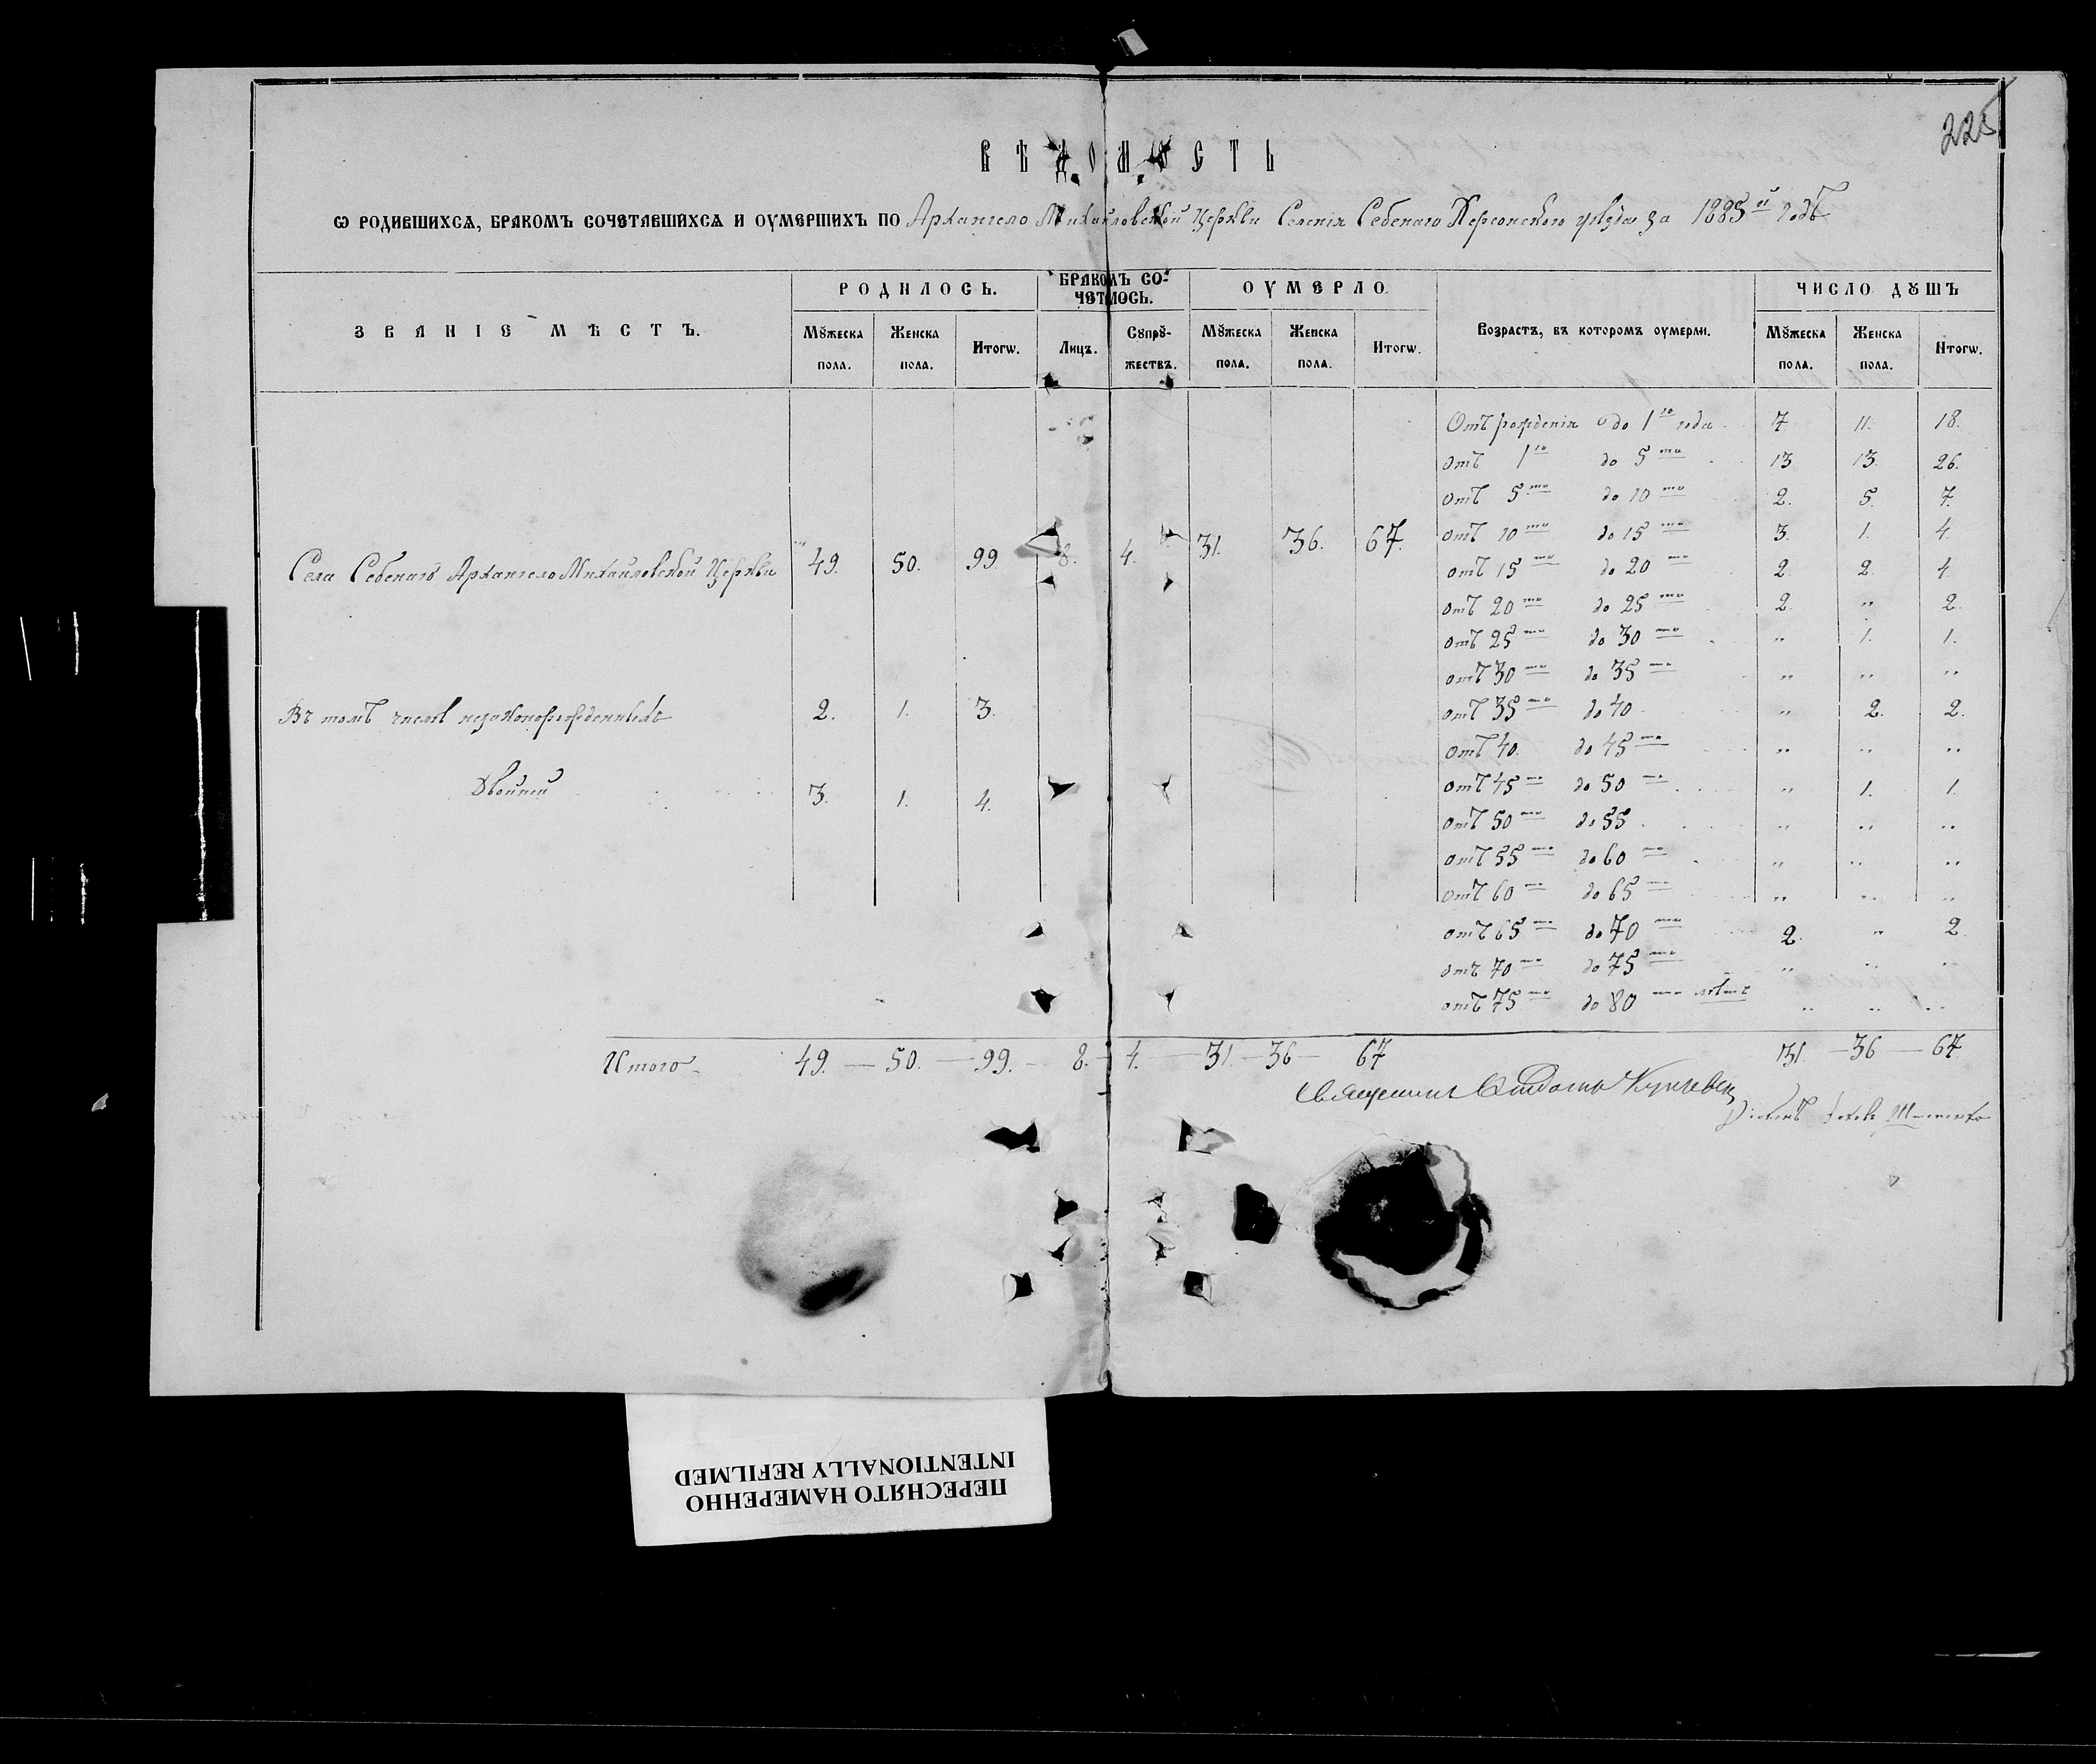 225
ВѢДОМОСТЬ
Ѡ РОДИВШИХСѦ, БРАКОМЪ СОЧЕТАВШИХСѦ И ОУМЕРШИХЪ ПО Архангело Михайловской Церкви Селенія Себенаго Херсонскаго уѣзда за 1885й годъ
ЗВАНІЕ МѢСТЪ.
РОДИЛОСЬ.
БРАКОМЪ СО-
ЧЕТАЛОСЬ.
ОУМЕРЛО
Возрастъ, въ которомъ оумерли.
ЧИСЛО ДꙊШЪ
Мꙋжеска пола. Женска пола. Итогѡ. Лицъ. Сопрꙋ-жествъ. Мꙋжеска пола. Женска пола. Итогѡ. Мꙋжеска пола. Женска пола. Итогѡ.
Отъ рожденія до 1го года 7. 11. 18.
отъ 1го до 5ти 13 13. 26.
отъ 5ти до 10ти 2. 5. 7.
отъ 10ти до 15ти 3. 1. 4.
Села Себенаго Архангело Михайловской Церкви 49. 50. 99. 8. 4. 31. 36. 67.
отъ 15ти до 20ти 2. 2. 4.
отъ 20ти до 25ти 2. " 2.
отъ 25ти до 30ти " 1. 1.
отъ 30ти до 35ти " " "
Въ томъ числѣ незаконорожденныхъ 2. 1. 3.
отъ 35ти до 40 " 2. 2.
отъ 40. до 45ти " " "
Двойни 3. 1. 4.
отъ 45ти до 50ти " 1. 1.
отъ 50ти до 55 " " "
отъ 55ти до 60ти " " "
отъ 60ти до 65ти " " "
отъ 65ти до 70ти 2. " 2
отъ 70ти до 75ти " " "
отъ 75ти до 80ти лѣтъ " " "
Итого 49. — 50. — 99. — 8. — 4. — 31 — 36 — 67 31. — 36 — 67
Священникъ
Діаконъ
ПЕРЕСНЯТО НАМЕРЕННО
INTENTIONALLY REFILMED